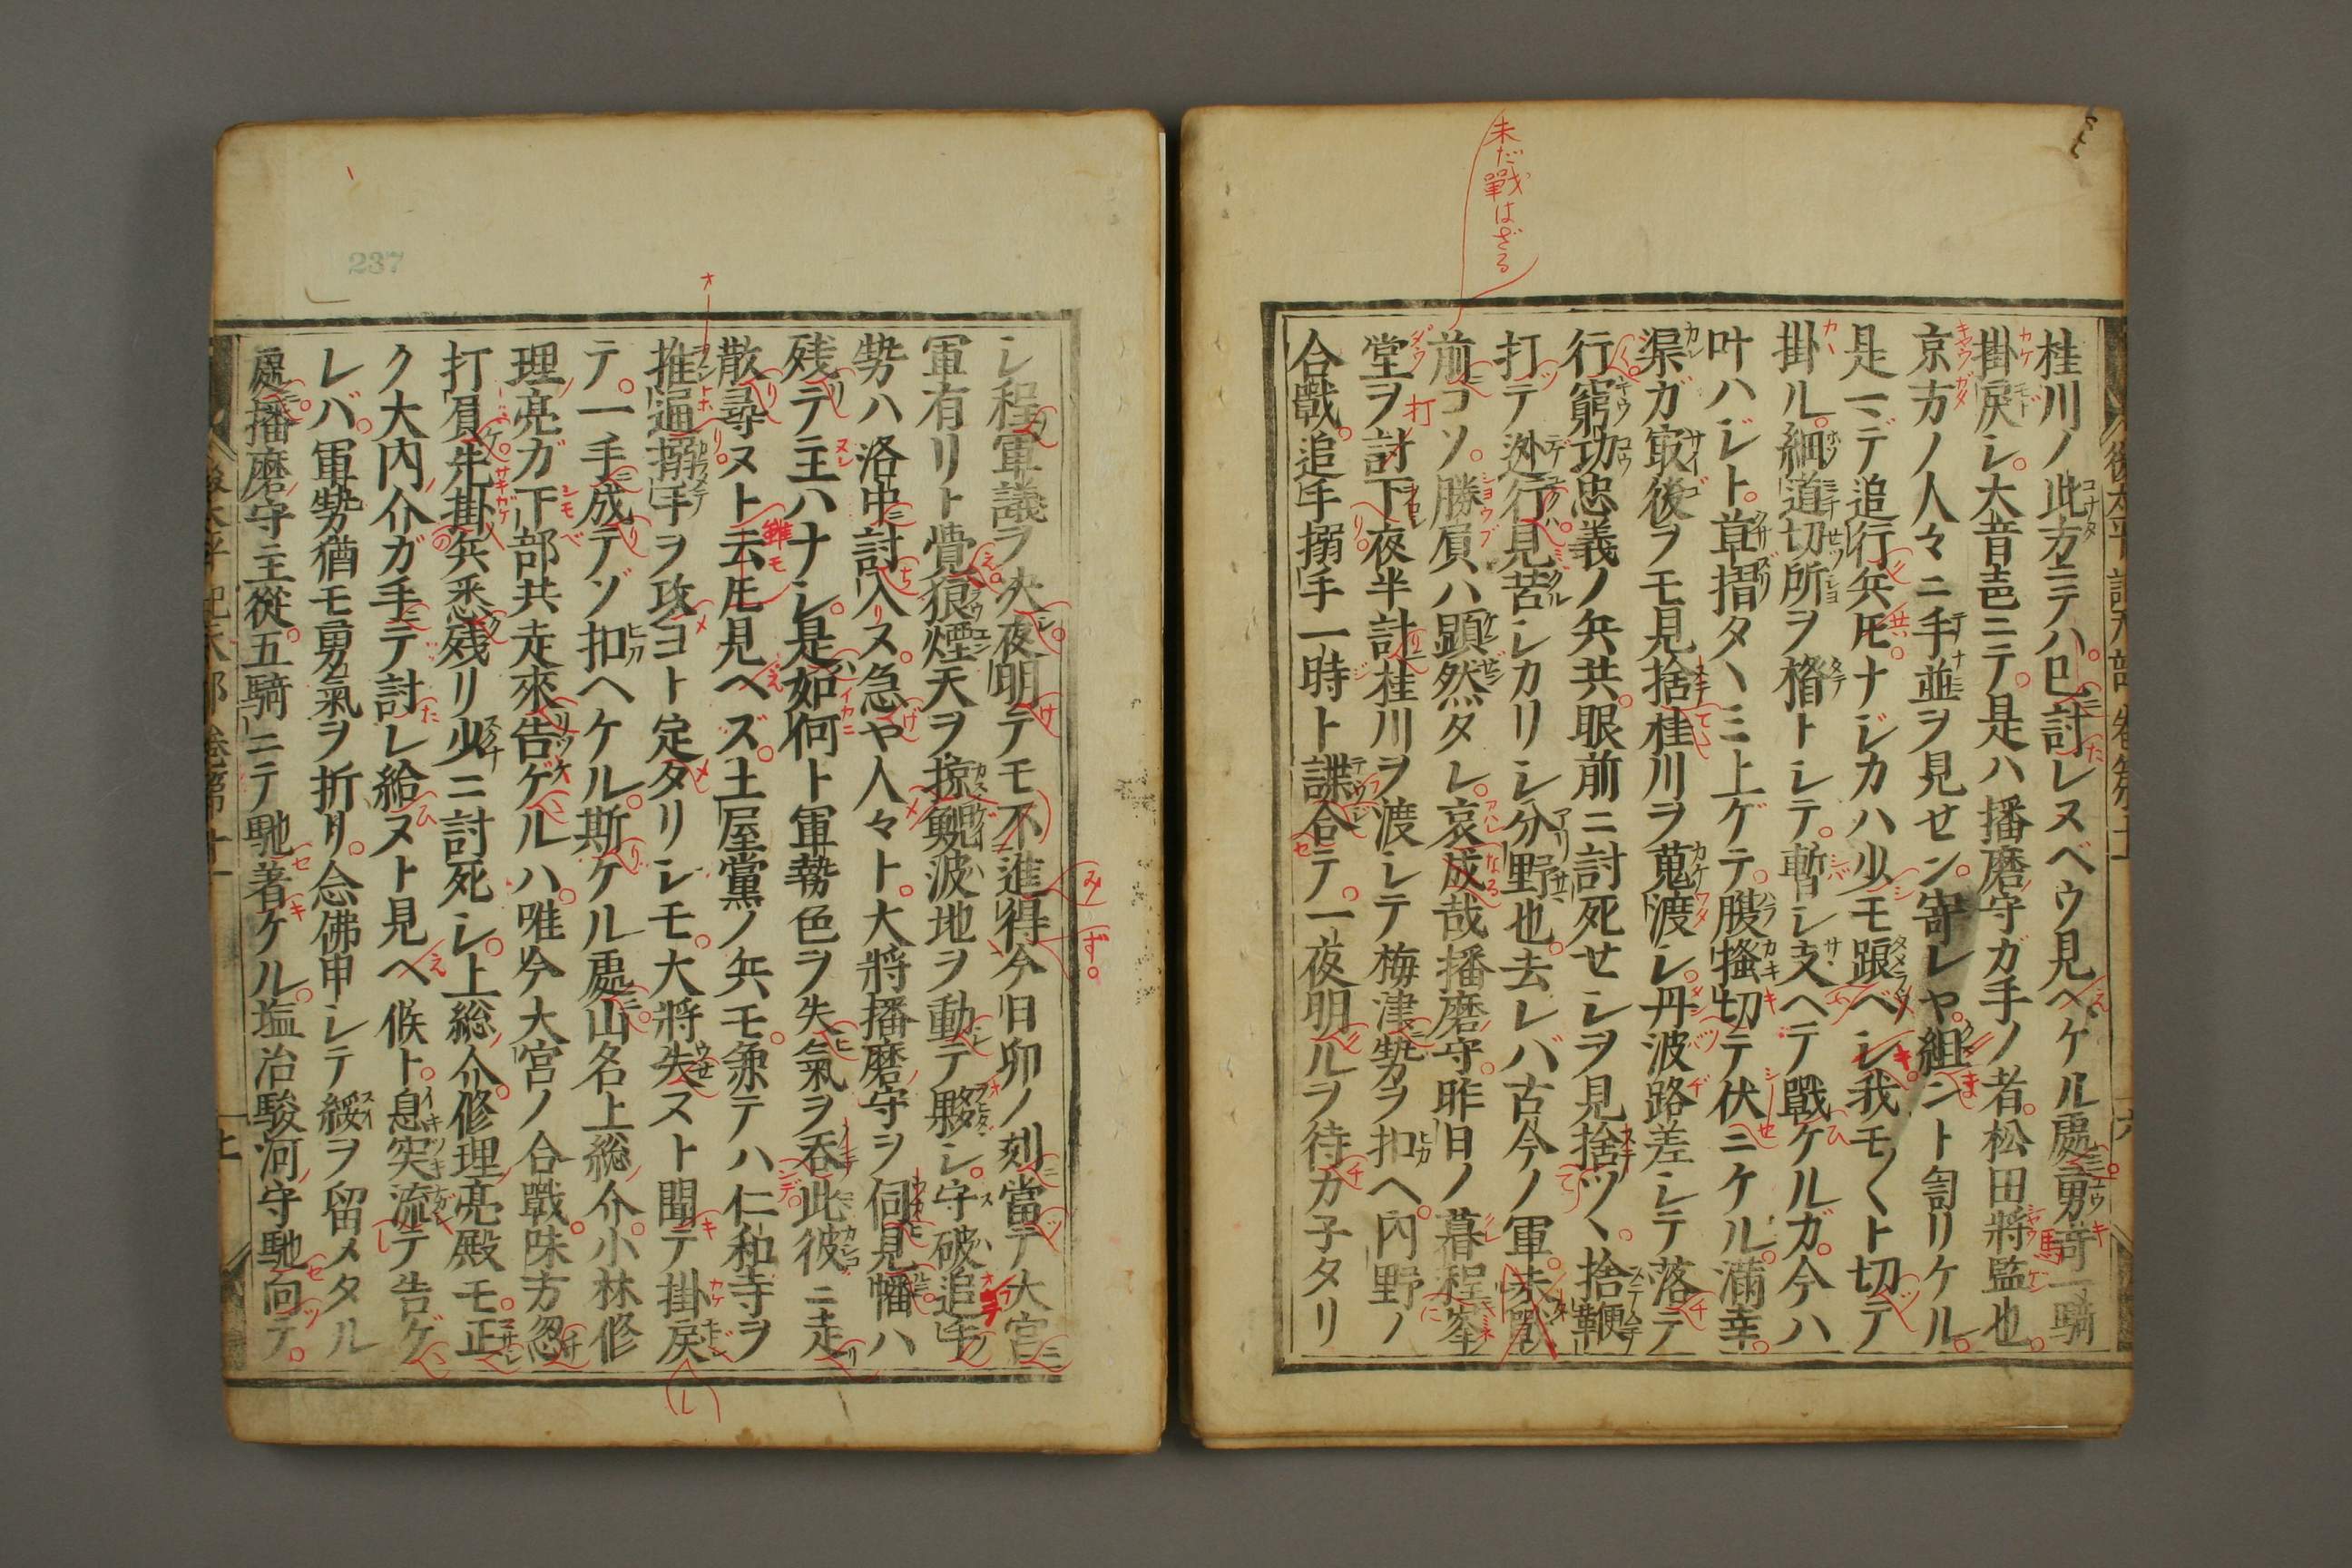 未だ戰はざる
桂川ノ此方ニテハ已討レヌベウ見ヘケル處勇騎一騎
掛戻シ大音声ニテ是ハ播磨守ガ手ノ者松田將監也
京方ノ人々ニ手並ヲ見せン寄レヤ組ント訇リケル
是ニデ追行兵圧ナジカハ少モ踉ベシ我モ〳〵ト切テ
掛ル細道切所ヲ楯トレテ暫レ支ヘテ戰ケルガ今ハ
叶ハジト草摺タヽミ上ゲテ腹搔切テ伏ニケル滿幸
渠ガ㝡後ヲモ見捨桂川ヲ蒐渡レ丹波路差レテ落テ
行窮功忠義ノ兵共眼前ニ討死せレヲ見捨ツヽ捨鞭
打テ迯行見苦レカリレ分野也去レバ古今ノ軍未戰
前コソ勝負ハ顕然タレ哀成哉播磨守昨日ノ暮程峯
堂ヲ討下夜半計桂川ヲ渡レテ梅津勢ヲ扣ヘ内野ノ
合戰追手搦手一時ト諜合テ一夜明ルヲ待カ子タリ
237
レ程軍議ヲ决夜明テモ不進得今日卯ノ刻當テ大宮
軍有リト覺狼煙天ヲ掠鯢波地ヲ動テ夥シ守破追手
勢ハ洛中討入ヌ急や人々ト大將播磨守ヲ伺見幡ハ
残テ主ハナシ是如何ト軍勢色ヲ失氣ヲ呑此彼ニ走
散尋ヌト云圧見ヘズ土屋黨ノ兵モ兼テハ仁和寺ヲ
推逼搦手ヲ攻ヨト定タリレモ大將失ヌト聞テ掛戻
テ一手成テゾ扣ヘケル斯ケル處山名上総介小林修
理亮ガ下部共走來告ゲルハ唯今大宮ノ合戰味方忽
打負先掛兵悉残リ少ニ討死レ上総介修理亮殿モ正
ク大内介ガ手テ討レ給ヌト見ヘ候ト息突流テ告ゲ
レバ軍勢猶モ勇氣ヲ折リ念佛申レテ綏ヲ留メタル
處播磨守主從五騎ニテ馳著ケル塩冶駿河守馳向テ